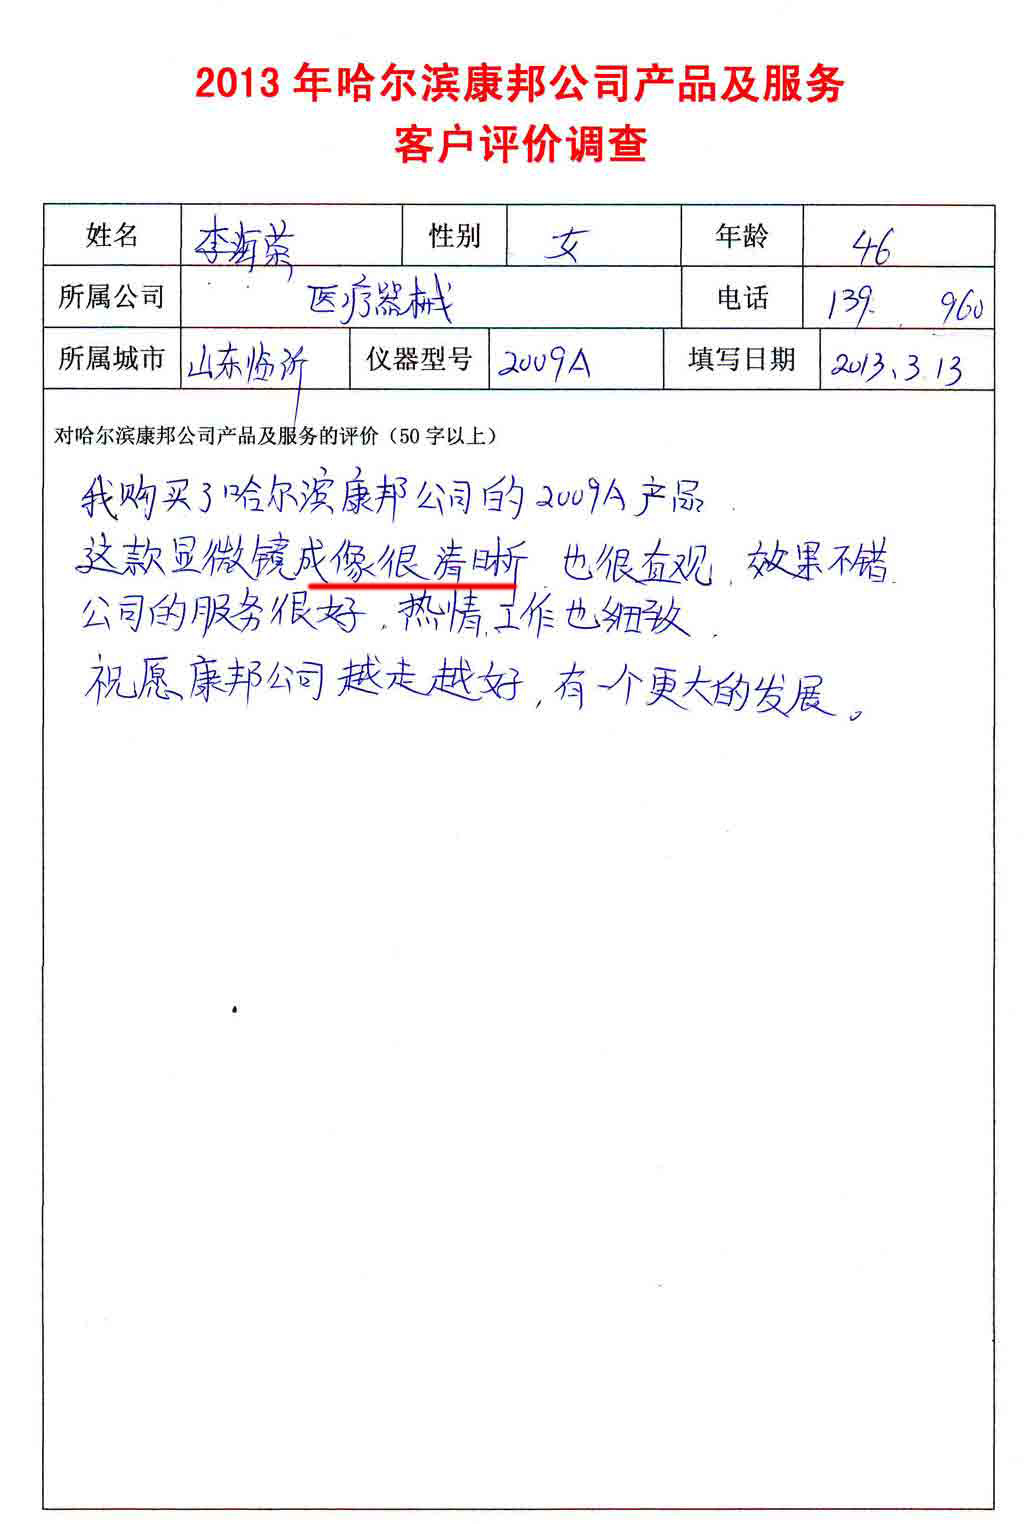 2013年哈尔滨康邦公司产品及服务
客户评价调查
姓名 李海荣 性别 女 年龄 46
所属公司 医疗器械 电话 139 960
所属城市 山东临沂 仪器型号 2009A 填写日期 2013、3.13
对哈尔滨康邦公司产品及服务的评价（50字以上）
我购买了哈尔滨康邦公司的2009A产品.
这款显微镜成像很清晰,也很直观,效果不错.
公司的服务很好,热情,工作也细致.
祝愿康邦公司越走越好,有一个更大的发展。